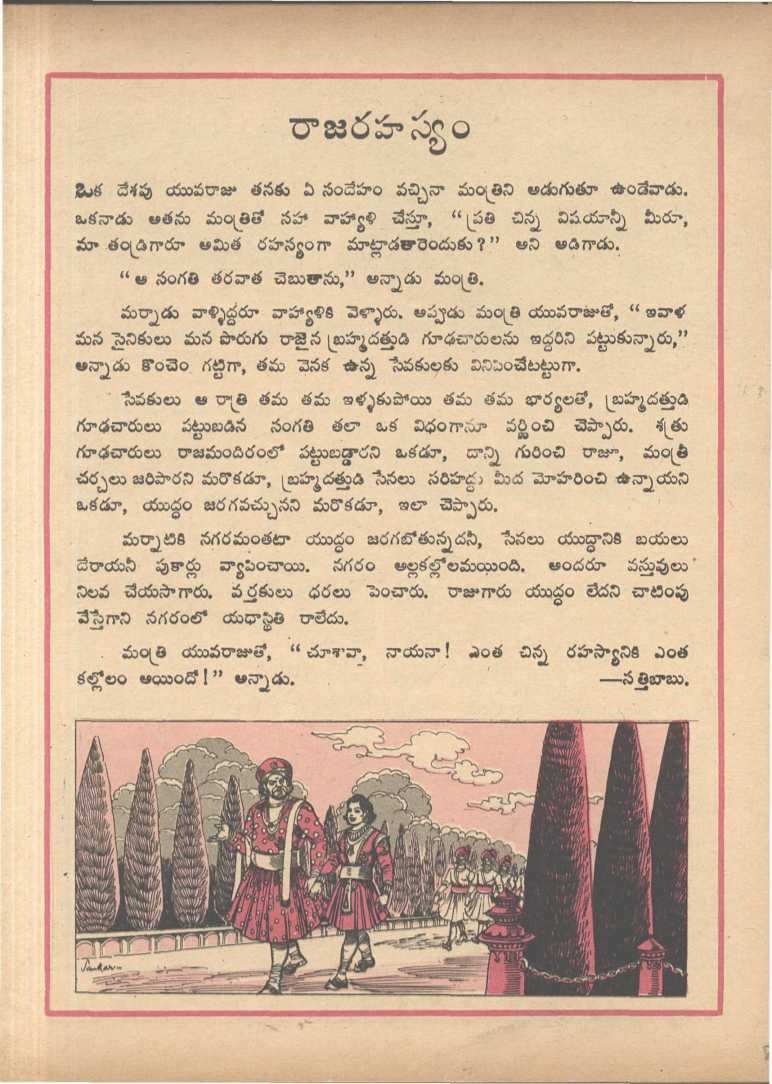 రాజరహస్యం
ఒక దేశపు యువరాజు తనకు ఏ సందేహం వచ్చినా మంత్రిని అడుగుతూ ఉండేవాడు.
ఒకనాడు అతను మంత్రితో సహా వాహ్యాళి చేస్తూ, “ప్రతి చిన్న విషయాన్నీ మీరూ,
మా తండ్రిగారూ అమిత రహస్యంగా మాట్లాడతారెందుకు?” అని అడిగాడు.
“ఆ సంగతి తరవాత చెబుతాను,” అన్నాడు మంత్రి.
మర్నాడు వాళ్ళిద్దరూ వాహ్యాళికి వెళ్ళారు. అప్పుడు మంత్రి యువరాజుతో, “ఇవాళ
మన సైనికులు మన పొరుగు రాజైన బ్రహ్మదత్తుడి గూఢచారులను ఇద్దరిని పట్టుకున్నారు,”
అన్నాడు కొంచెం గట్టిగా, తమ వెనక ఉన్న సేవకులకు వినిపించేటట్టుగా.
సేవకులు ఆ రాత్రి తమ తమ ఇళ్ళకుపోయి తమ తమ భార్యలతో, బ్రహ్మదత్తుడి
గూఢచారులు పట్టుబడిన సంగతి తలా ఒక విధంగానూ వర్ణించి చెప్పారు. శత్రు
గూఢచారులు రాజమందిరంలో పట్టుబడ్డారని ఒకడూ, దాన్ని గురించి రాజూ, మంత్రీ
చర్చలు జరిపారని మరొకడూ, బ్రహ్మదత్తుడి సేనలు సరిహద్దు మీద మోహరించి ఉన్నాయని
ఒకడూ, యుద్ధం జరగవచ్చునని మరొకడూ, ఇలా చెప్పారు.
మర్నాటికి నగరమంతటా యుద్ధం జరగబోతున్నదనీ, సేనలు యుద్ధానికి బయలు
దేరాయనీ పుకార్లు వ్యాపించాయి. నగరం అల్లకల్లోలమయింది. అందరూ వస్తువులు
నిలవ చేయసాగారు. వర్తకులు ధరలు పెంచారు. రాజుగారు యుద్ధం లేదని చాటింపు
వేస్తేగాని నగరంలో యథాస్థితి రాలేదు.
మంత్రి యువరాజుతో, “చూశావా, నాయనా! ఎంత చిన్న రహస్యానికి ఎంత
కల్లోలం అయిందో!” అన్నాడు. —సత్తిబాబు.
Sankar